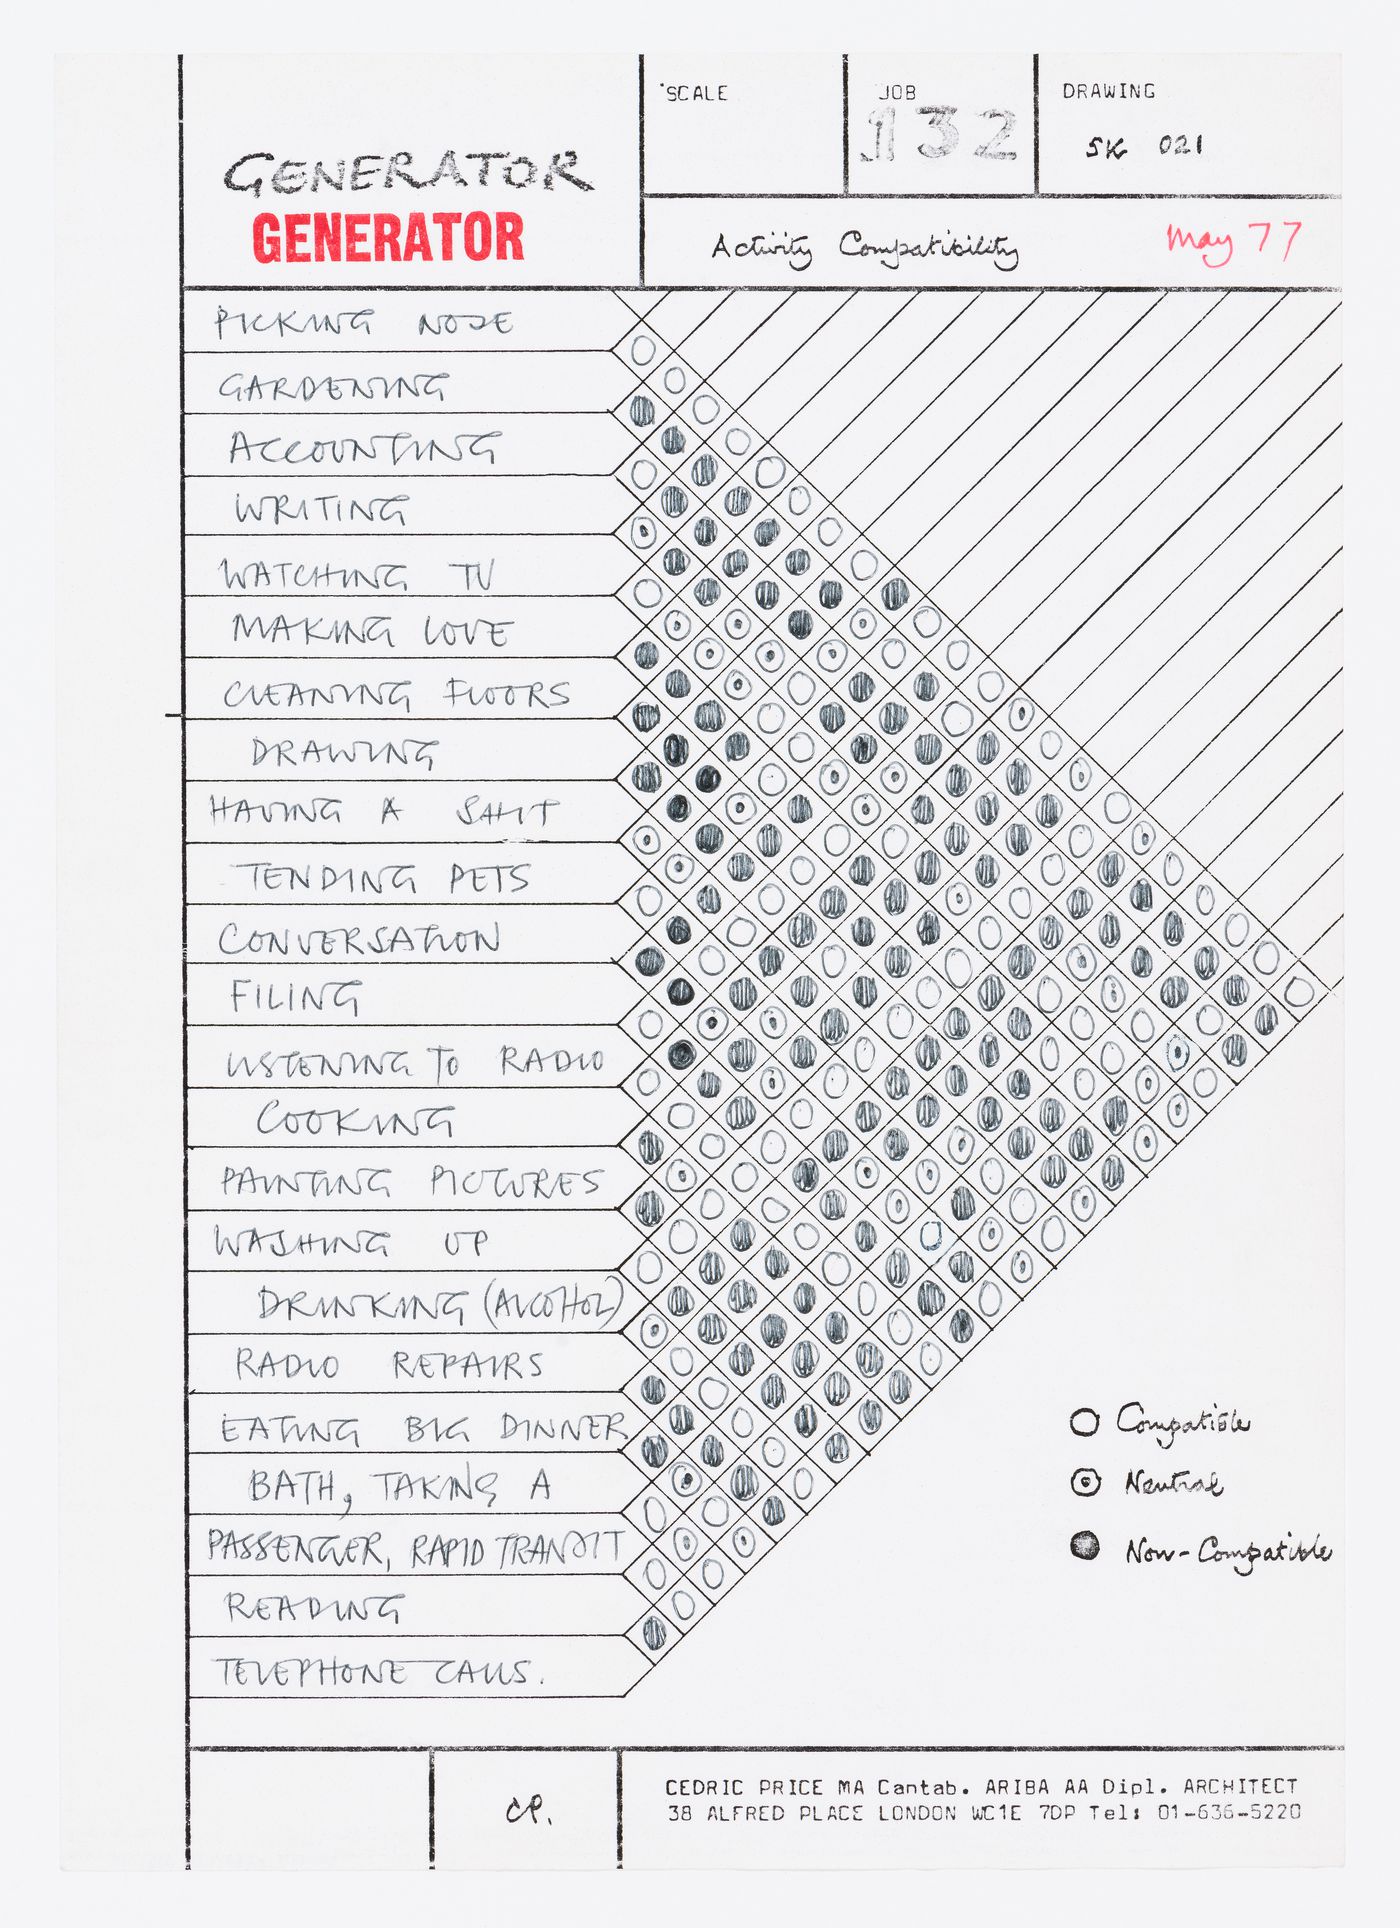 SCALE
JOB
DRAWING
132
SK 021
GENERATOR
GENERATOR
Activity Compatibility
May 77
PICKING NOSE
GARDENING
ACCOUNTING
WRITING
WATCHING TV
MAKING LOVE
CLEANING FLOORS
DRAWING
HAVING A SHIT
TENDING PETS
CONVERSATION
FILING
LISTENING TO RADIO
COOKING
PAINTING PICTURES
WASHING UP
DRINKING (ALCOHOL)
RADIO REPAIRS
EATING BIG DINNER
BATH, TAKING A
PASSENGER, RAPID TRANSIT
READING
TELEPHONE CALLS.
Compatible
Neutral
Non-Compatible
CP.
CEDRIC PRICE MA Cantab. ARIBA AA Dipl. ARCHITECT
38 ALFRED PLACE LONDON WC1E 7DP Tel: 01-636-5220